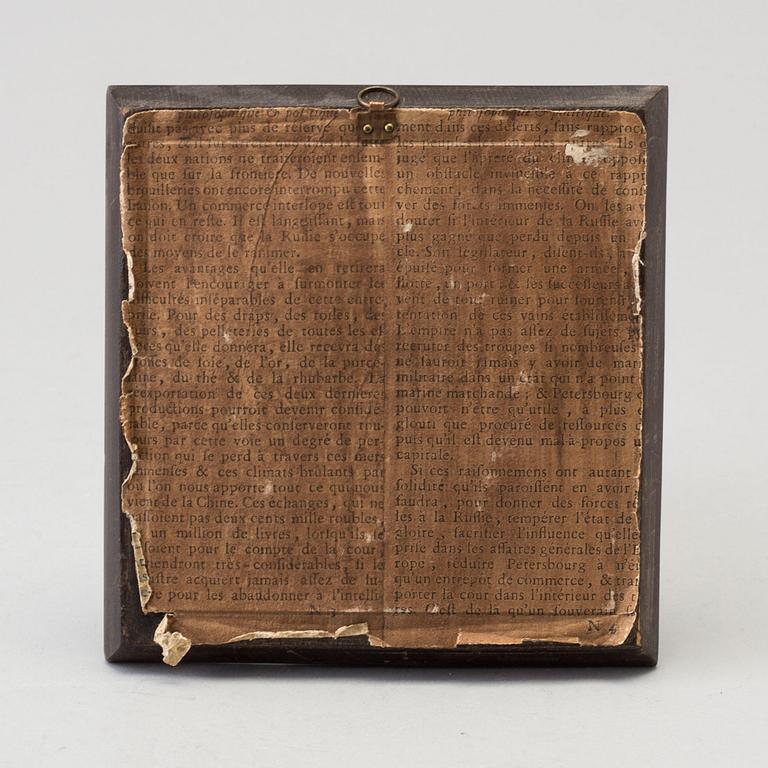 philosophique & politique.
duiſit pas avec plus de réſerve que
les deux nations ne traiteroient enſem-
ble que ſur la frontiere. De nouvelles
brouilleries ont encore interrompu cette
liaiſon. Un commerce interlope eſt tout
ce qui en reſte. Il eſt languiſſant, mais
on doit croire que la Ruſſie s'occupe
des moyens de le ranimer.
Les avantages qu'elle en retirera
doivent l'encourager à ſurmonter les
difficultés inſéparables de cette entre-
priſe. Pour des draps, des toiles, des
cuirs, des pelleteries de toutes les eſ-
peces qu'elle donnera, elle recevra des
étoffes de ſoie, de l'or, de la porce-
laine, du thé & de la rhubarbe. La
réexportation de ces deux dernieres
productions pourroit devenir conſidé-
rable, parce qu'elles conſerveront tou-
jours par cette voie un degré de per-
fection qui ſe perd à travers ces mers
immenſes & ces climats brûlants par
où l'on nous apporte tout ce qui nous
vient de la Chine. Ces échanges, qui ne
paſſoient pas deux cents mille roubles,
un million de livres, lorſqu'ils ſe
faiſoient pour le compte de la cour,
deviendront très-conſidérables, ſi le
miniſtre acquiert jamais aſſez de lu-
pour les abandonner à l'intelli-
N 3
philoſophique & politique.
ment dans ces déſerts, ſans rapproc
Ils
juge que l'âpreté du climat oppoſe
un obſtacle invincible à ce rappr
chement, dans la néceſſité de conſ
ver des forces immenſes. On les a v
douter ſi l'intérieur de la Ruſſie av
plus gagné que perdu depuis un
cle. Son légiſlateur, diſent-ils,
épuiſé pour former une armée,
flotte, un port; & ſes ſucceſſeurs
vent de tout ruiner pour ſoutenir
tentation de ces vains établiſſeme
L'empire n'a pas aſſez de ſujets p
recruter des troupes ſi nombreuſes
ne ſauroit jamais y avoir de mar
militaire dans un état qui n'a point
marine marchande; & Petersbourg
pouvoit n'être qu'utile, a plus
glouti que procuré de reſſources
puis qu'il eſt devenu mal à-propos u
capitale.
Si ces raiſonnemens ont autant
ſolidité qu'ils paroiſſent en avoir
faudra, pour donner des forces ré
les à la Ruſſie, tempérer l'état de
gloire, ſacrifier l'influence qu'elle
priſe dans les affaires générales de l'E
rope, réduire Petersbourg à n'êt
qu'un entrepôt de commerce, & tran
porter la cour dans l'intérieur des t
res. C'eſt de là qu'un ſouverain ſ
N 4